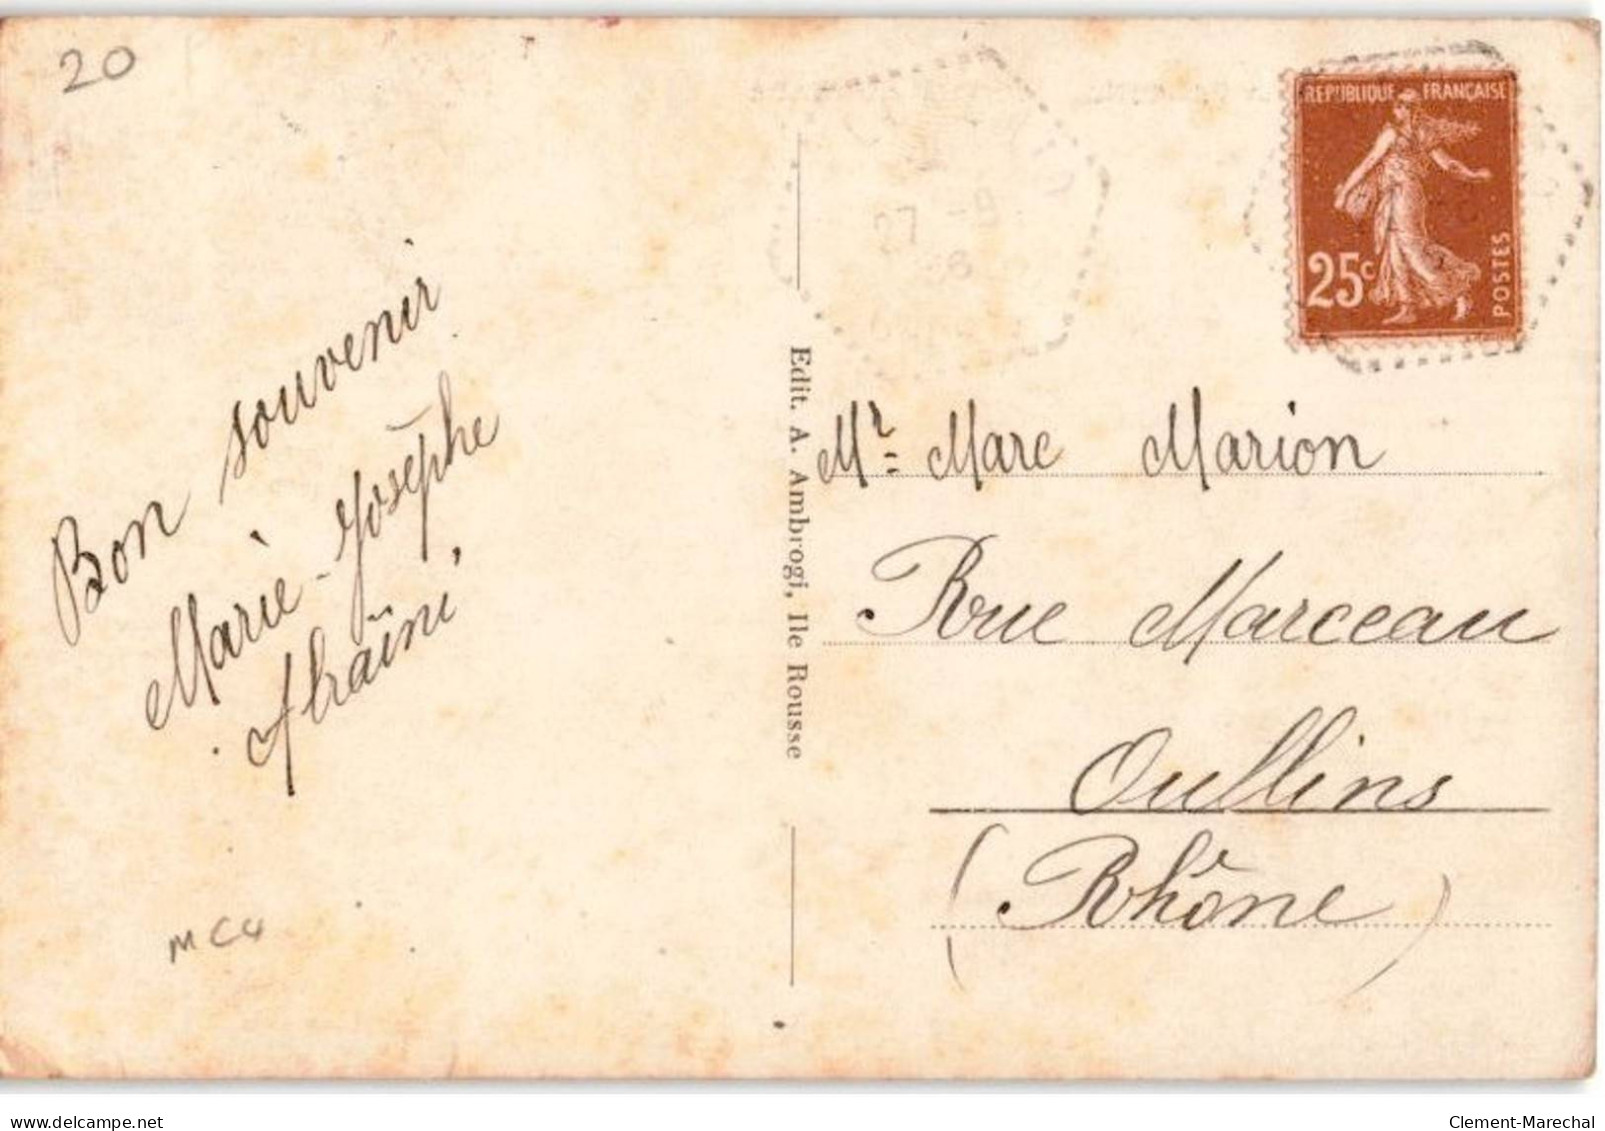 20
Bon souvenir
Marie-Josèphe
MC4
Edit. A. Ambrogi, Ile Rousse
27 -9
REPUBLIQUE FRANÇAISE
25c
POSTES
Mr Marc Marion
Rue Marceau
Oullins
(Rhône)
delcampe.net
Clement-Marechal